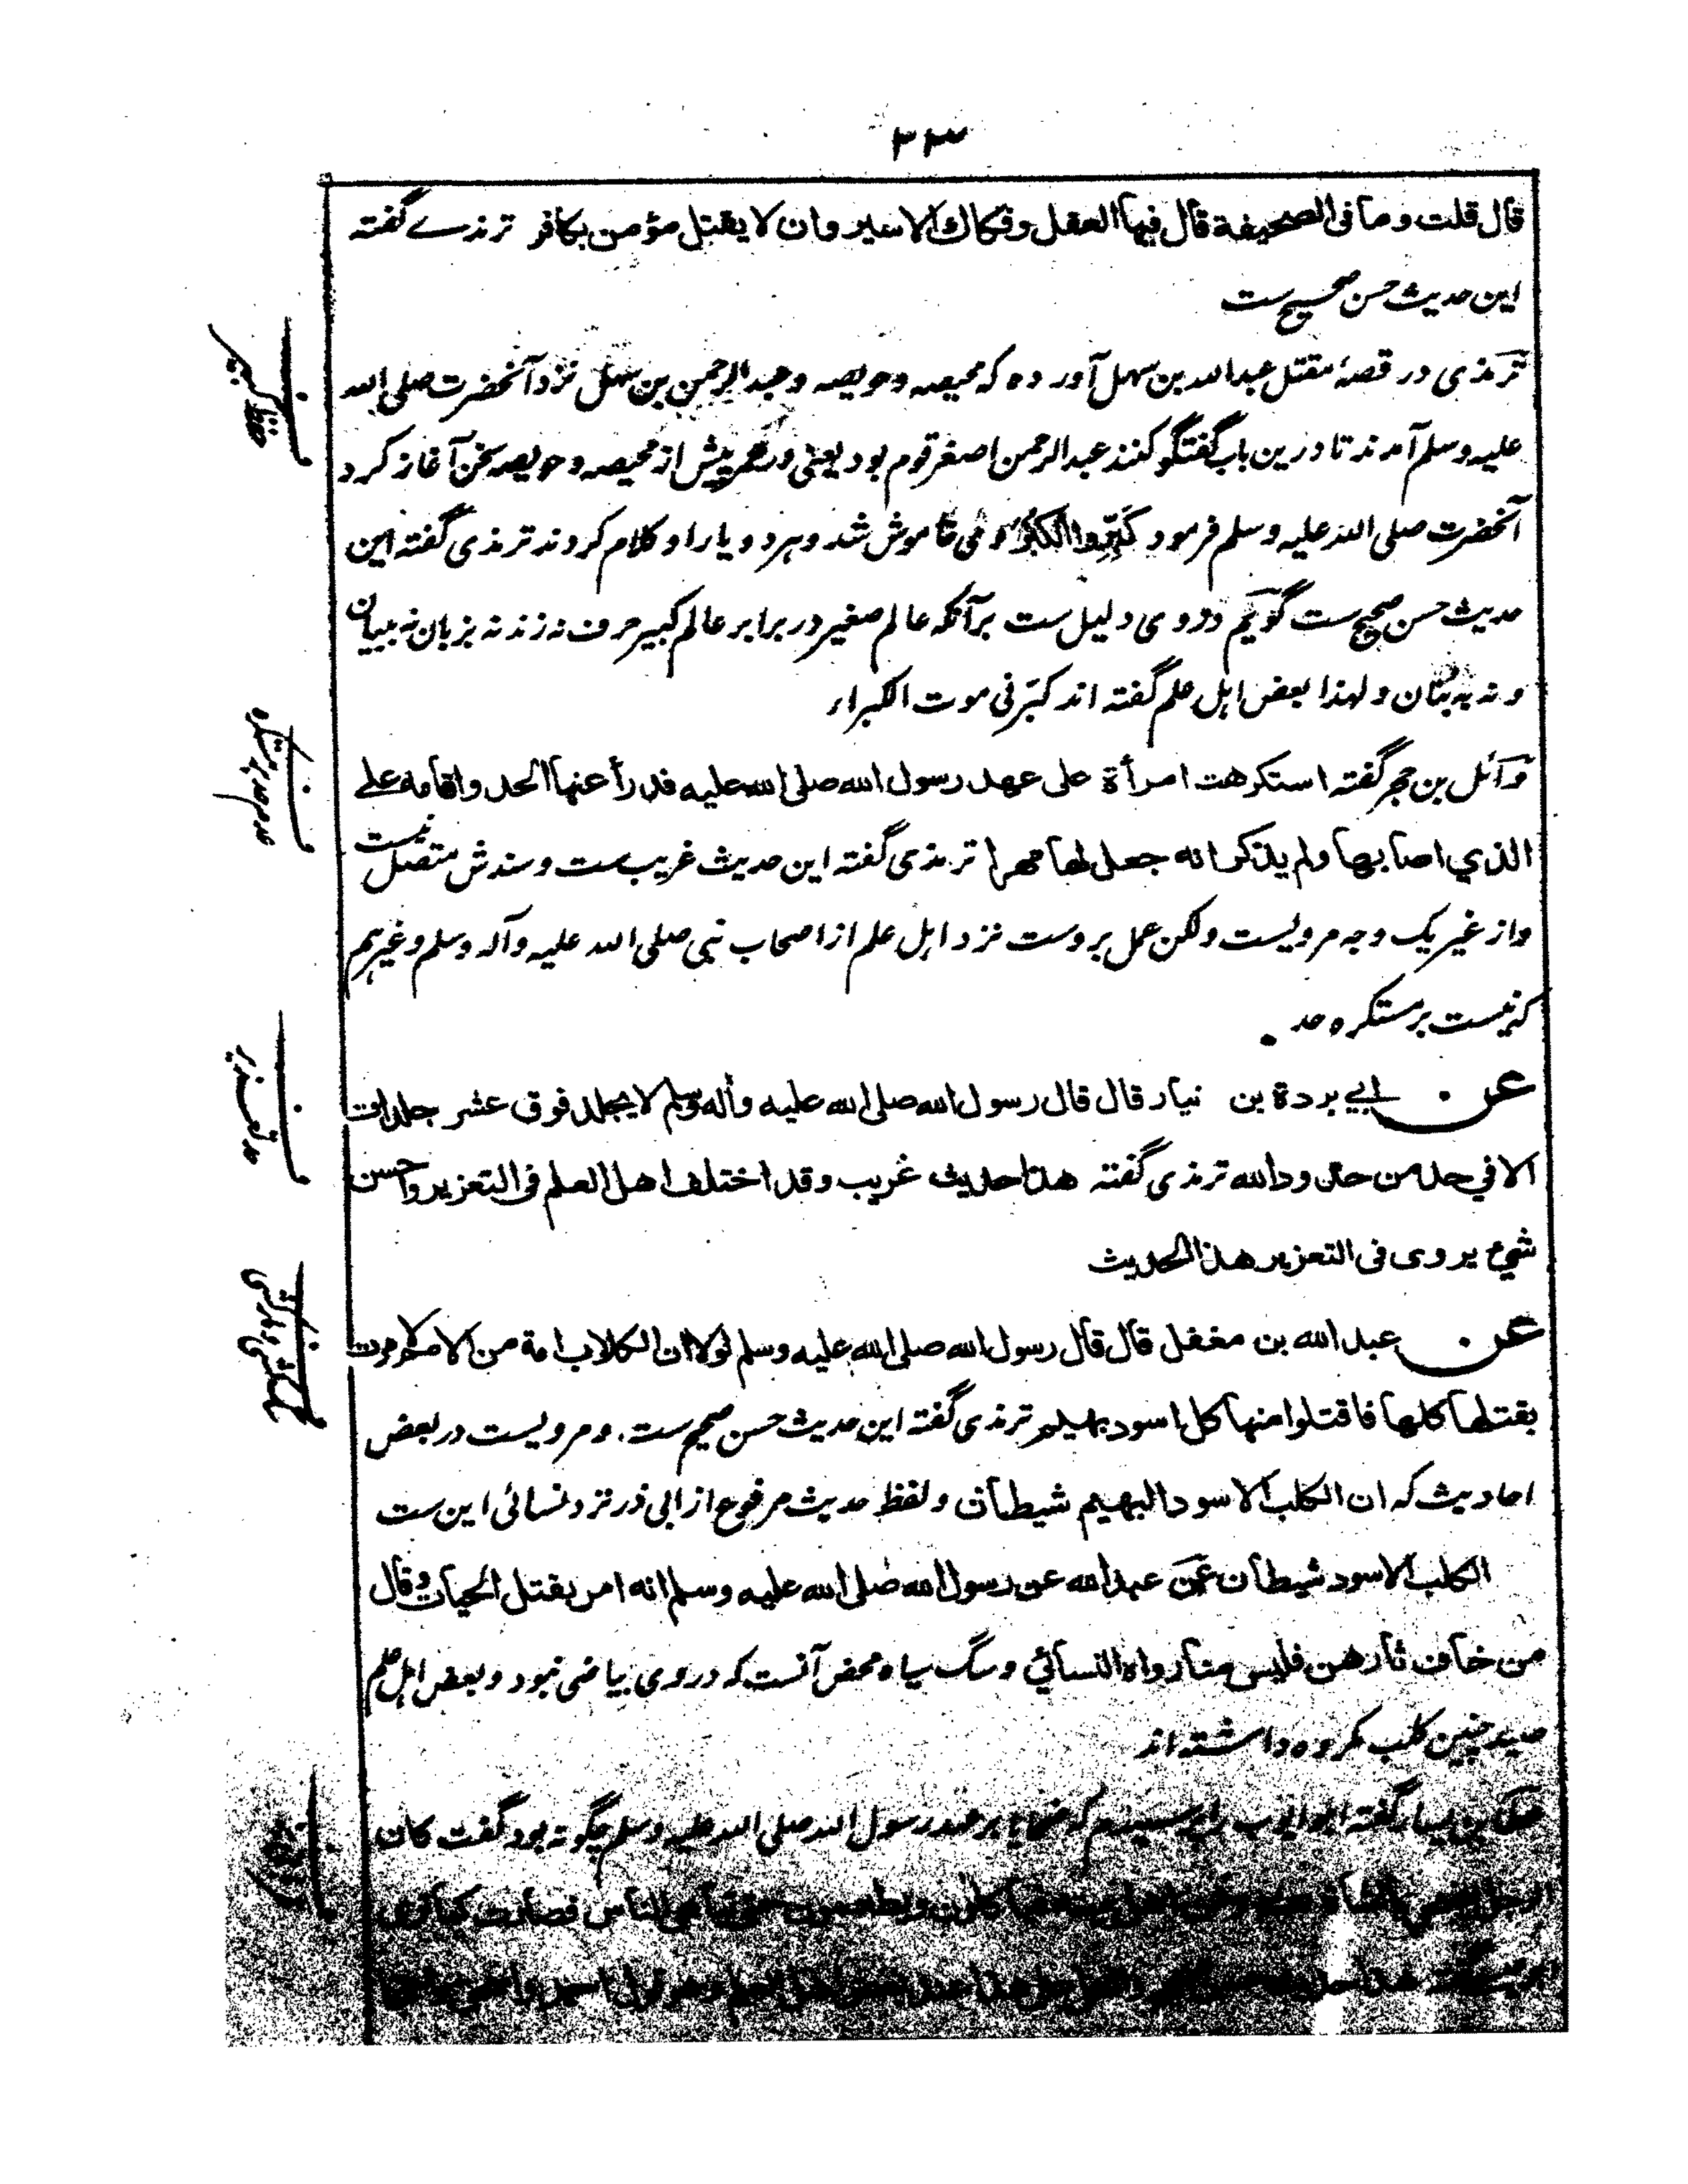 ٣٣
قال قلت وما فى الصحيفة قال فيها العقل وفكاك الاسير وان لا يقتل مؤمن بكافر ترمذے گفته
این حدیث حسن صحیح ست
ترمذی در قصۂ مقتل عبد الله بن سہل آورده که محیصه وحویصه وعبد الرحمن بن سہل نزد آنحضرت صلی الله
علیه وسلم آمدند تا درین باب گفتگو کنند عبد الرحمن اصغر قوم بود یعنی در عمر پیش از محیصه وحویصه سخن آغاز کرد
آنحضرت صلی الله علیه وسلم فرمود كَبِّروا الكُبْرَ وی خاموش شد وہر دو یارا و کلام کردند ترمذی گفته این
حدیث حسن صحیح ست گویم در وی دلیل ست برآنکه عالم صغیر در برابر عالم کبیر حرف نه زند نه بزبان نه ببیان
ونه به بنان ولهذا بعض اہل علم گفته اند کبّرنی موت الکبراء
وائل بن حجر گفته استكرهت امرأة على عهد رسول الله صلى الله عليه فدرأ عنها الحد واقامه علے
الذي اصابها ولم يذكر انه جعل لها مهرا ترمذی گفته این حدیث غریب ست وسندش متصل نیست
واز غیر یک وجه مرویست ولکن عمل بروست نزد اہل علم از اصحاب نبی صلی الله علیه وآله وسلم وغیرہم
که نیست بر مستکره حد
عن ابي بردة بن نيار قال قال رسول الله صلى الله عليه وأله وسلم لا يجلد فوق عشر جلدات
الا في حد من حدود الله ترمذی گفته هذا حديث غريب وقد اختلف اهل العلم فى التعزير واحسن
شيء يروى فى التعزير هذا الحديث
عن عبد الله بن مغفل قال قال رسول الله صلى الله عليه وسلم لولا ان الكلاب امة من الامم لامرت
بقتلها كلها فاقتلوا منها كل اسود بهيم ترمذی گفته این حدیث حسن صحیح ست. ومرویست در بعض
احادیث که ان الكلب الاسود البهيم شيطان ولفظ حدیث مرفوع از ابی ذر نزد نسائی این ست
الكلب الاسود شيطان عن عبد الله عن رسول الله صلى الله عليه وسلم انه امر بقتل الحيات وقال
من خاف ثارهن فليس منا رواه النسائي وسگ سیاه محض آنست که در وی بیاضی نبود وبعض اہل علم
صید چنین کلب مکروه داشته اند
عطا بن یسار گفته ابو ایوب را پرسیدم که ضحایا بر عهد رسول الله صلی الله علیه وسلم چگونه بود گفت كان
الرجل يضحي بالشاة عنه وعن اهل بيته فياكلون ويطعمون حتى تباهى الناس فصارت كما ترى
هذا